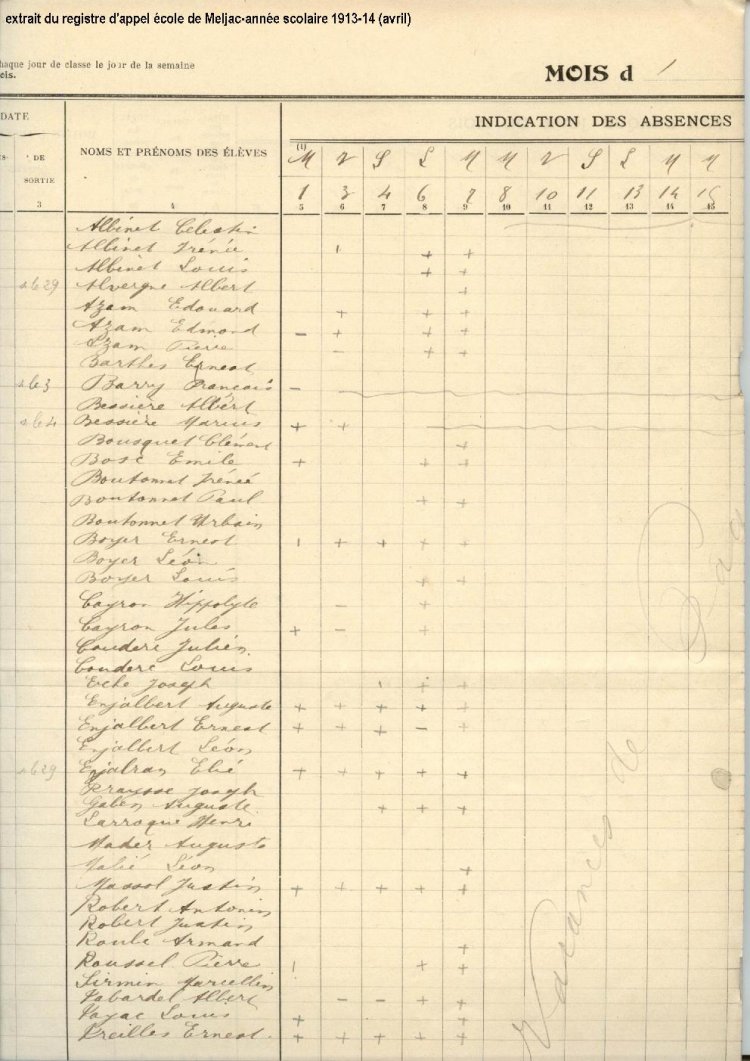 extrait du registre d'appel école de Meljac-année scolaire 1913-14 (avril)
haque jour de classe le jour de la semaine
cis.
MOIS d
DATE
INDICATION DES ABSENCES
NOMS ET PRÉNOMS DES ÉLÈVES
DE
SORTIE
(1)
M V S L M M V S L M M
1 3 4 6 7 8 10 11 13 14 15
3 4 5 6 7 8 9 10 11 12 13 14 15
Albinet Célestin
Albinet Irénée ı + +
Albinet Louis + +
le 29 Alvergne Albert +
Azam Edouard + + +
Azam Edmond – + + +
Azam Pierre – + +
Barthes Ernest
le 3 Barry François –
Bessière Albert
le 4 Bessière Marius + +
Bousquet Clément +
Bosc Emile + + +
Boutonnet Irénée
Boutonnet Paul + +
Boutonnet Urbain
Boyer Ernest ı + + + +
Boyer Léon
Boyer Louis + +
Cayron Hippolyte – +
Cayron Jules + – +
Couderc Julien
Couderc Louis
Eche Joseph ı + +
Enjalbert Auguste + + + + +
Enjalbert Ernest + + + – +
Enjalbert Léon
le 29 Enjalran Elie + + + + +
Fraysse Joseph
Galen Auguste + + +
Larroque Henri
Mader Auguste
Malié Léon +
Massol Justin + + + + +
Robert Antonin
Robert Justin
Roule Armand +
Roussel Pierre ı + +
Sirmin Marcellin
Tabardel Albert – – + +
Vayac Louis + +
Vreilles Ernest + + + + +
Vacances de